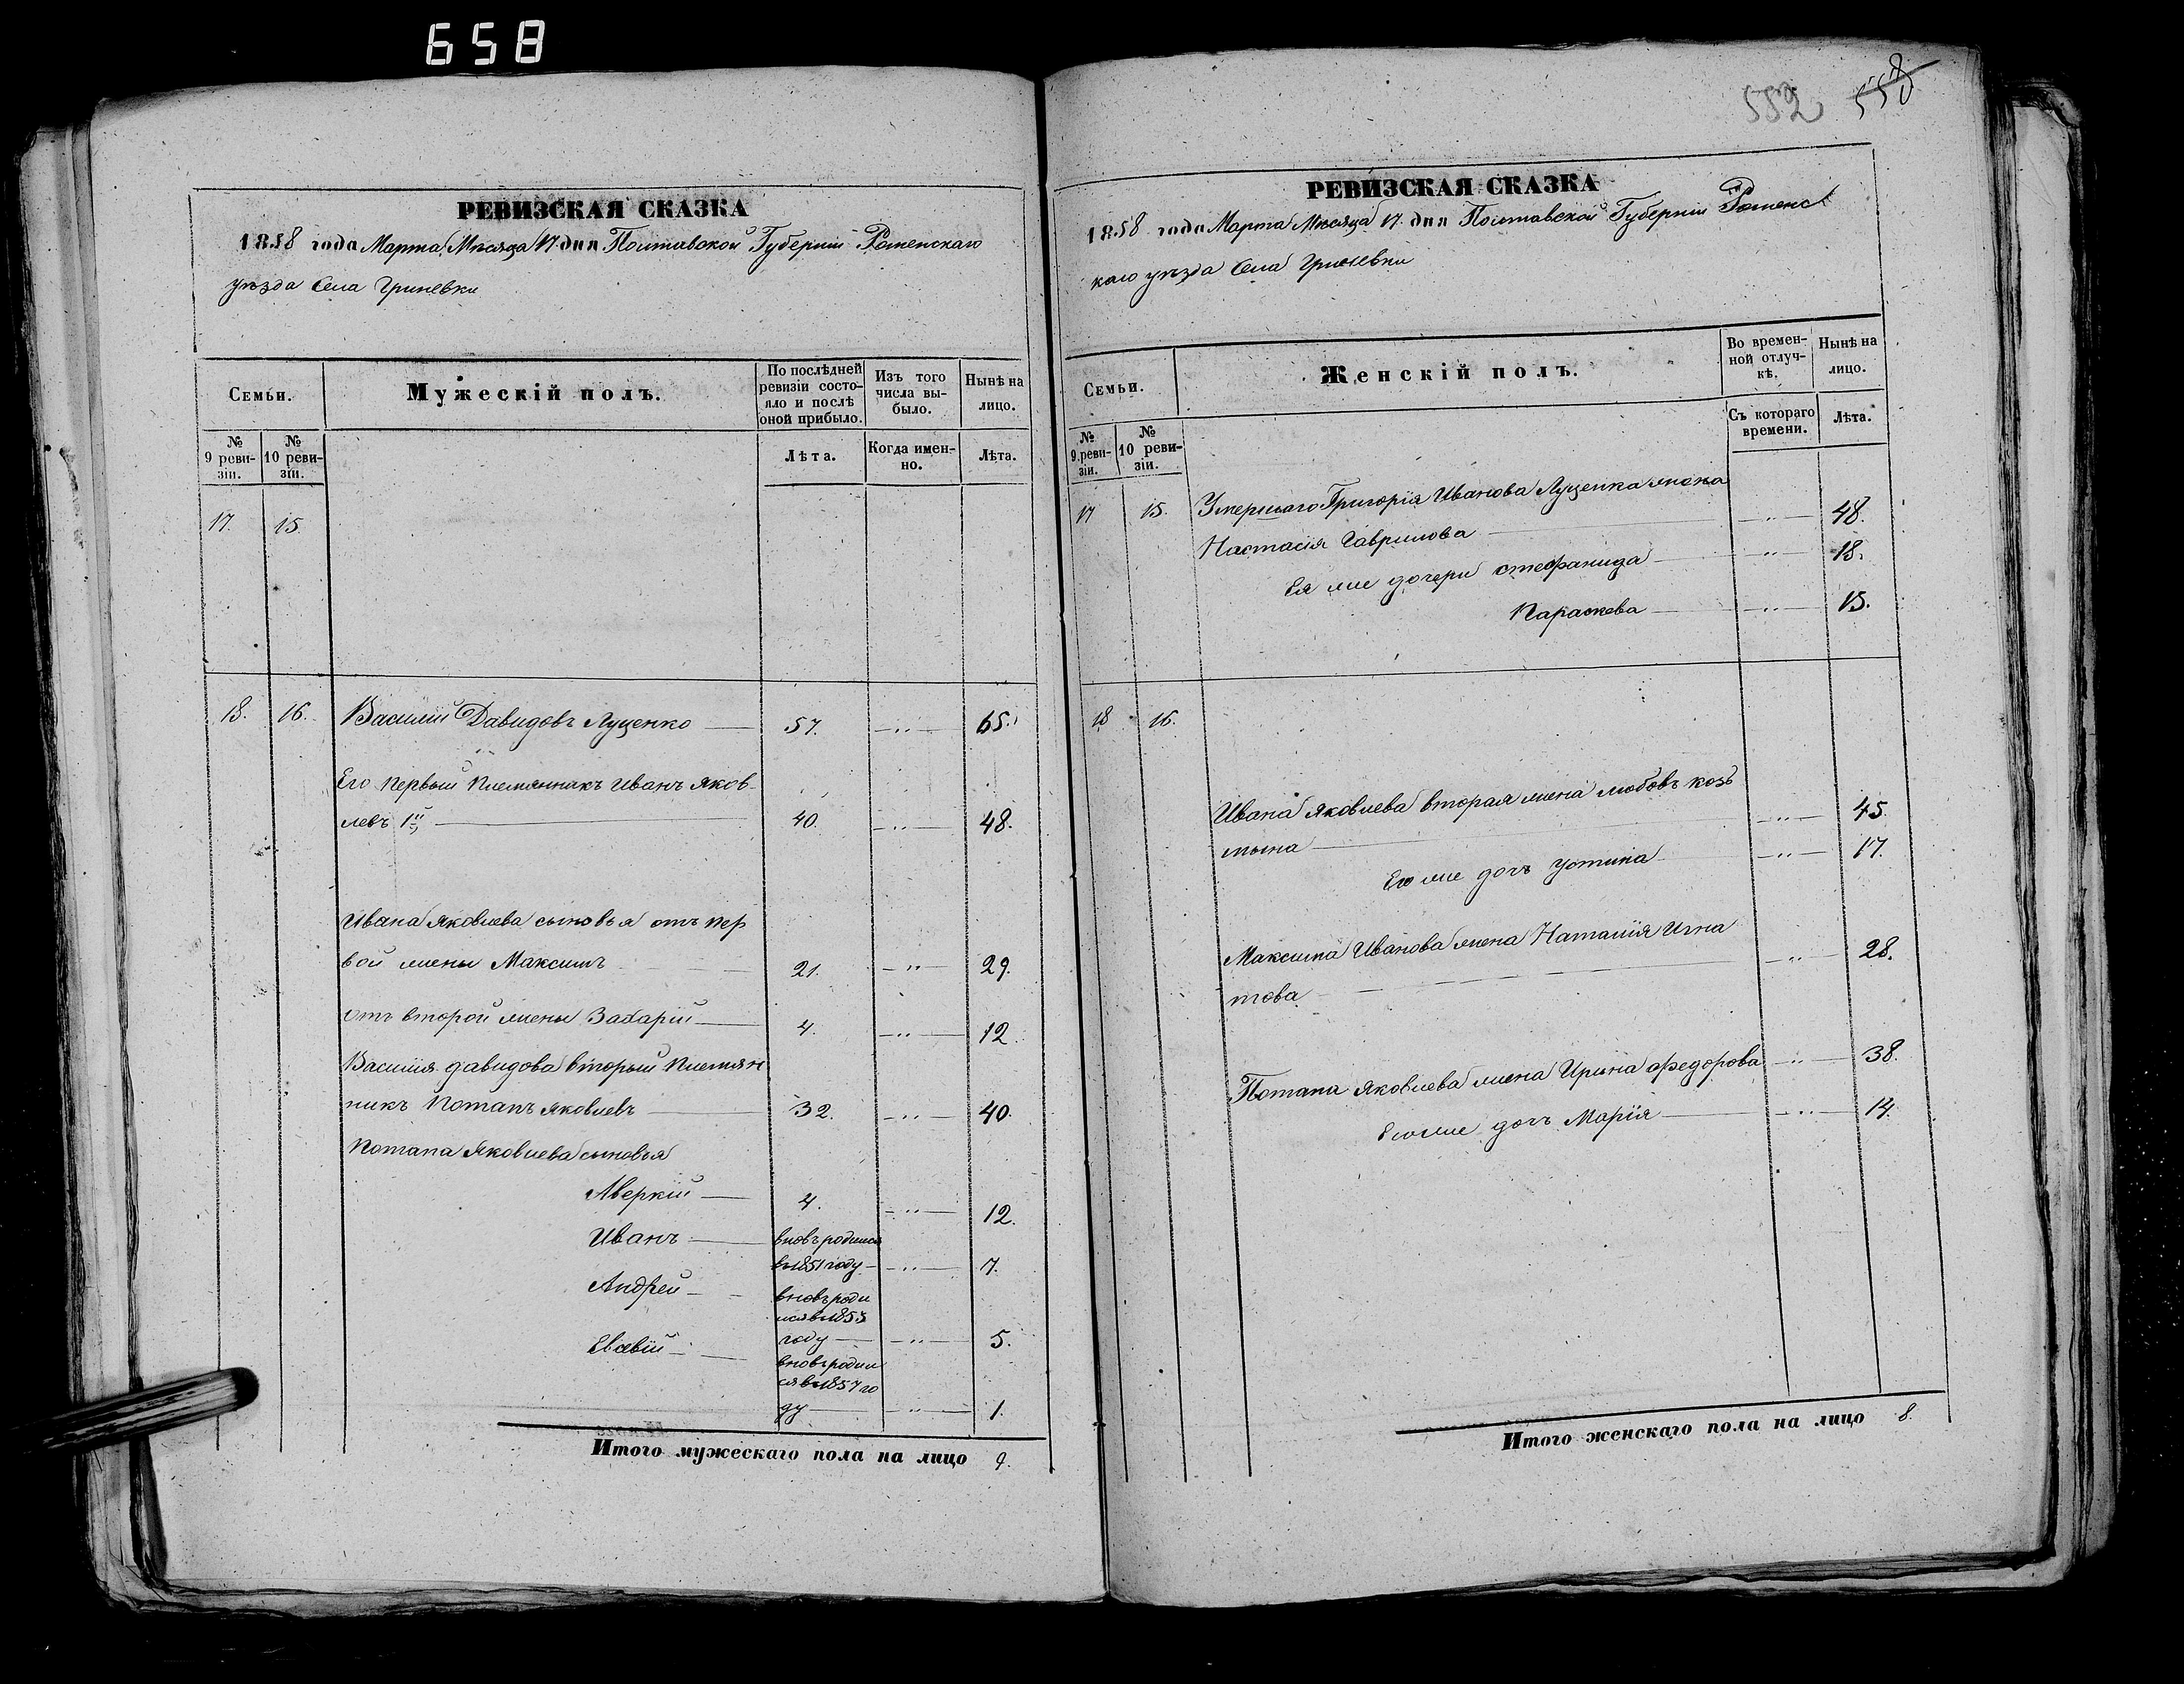 658
РЕВИЗСКАЯ СКАЗКА
1858 года Марта Месяца 17. дня Полтавской Губерніи Роменскаго
уѣзда Села Гриневки
Семьи.
Мужескій полъ.
По послѣдней ревизіи состояло и послѣ оной прибыло.
Изъ того числа выбыло.
Нынѣ на лицо.
№ 9 ревизіи.
№ 10 ревизіи.
Лѣта.
Когда именно.
Лѣта.
17. 15.
18. 16. Василій Давидовъ Луценко 57. „ 65.
Его первый племянникъ Иванъ Яков
левъ 1й 40. „ 48.
Ивана Яковлева сыновья отъ пер
вой жены Максимъ 21. „ 29.
отъ второй жены Захарій 4. „ 12.
Василія давидова вторый племян
никъ Потапъ Яковлевъ 32. „ 40.
Потапа Яковлева сыновья
Аверкій 4. „ 12.
Иванъ вновь родился
в 1851 году „ 7.
Андрей вновь роди
лся в 1853
году „ 5.
Евсевій вновь родил
ся в 1857 го
ду „ 1.
Итого мужескаго пола на лицо 9.
552 558
РЕВИЗСКАЯ СКАЗКА
1858 года Марта Месяца 17. дня Полтавской Губерніи Роменс
каго уѣзда Села Гриневки
Семьи.
Женскій полъ.
Во временной отлучкѣ.
Нынѣ на лицо.
№ 9 ревизіи.
№ 10 ревизіи.
Съ котораго времени.
Лѣта.
17 15. Умершаго Григорія Иванова Луценка жена
Настасія Гаврилова „ 48.
Ея же дочери стефанида „ 18.
Параскева „ 15.
18 16.
Ивана Яковлева вторая жена любовь козь
мына „ 45.
Его же дочь Устина „ 17.
Максима Иванова жена Наталія Игна
това „ 28.
Потапа Яковлева жена Ирина федорова „ 38.
Его же дочь Марія „ 14.
Итого женскаго пола на лицо 8.